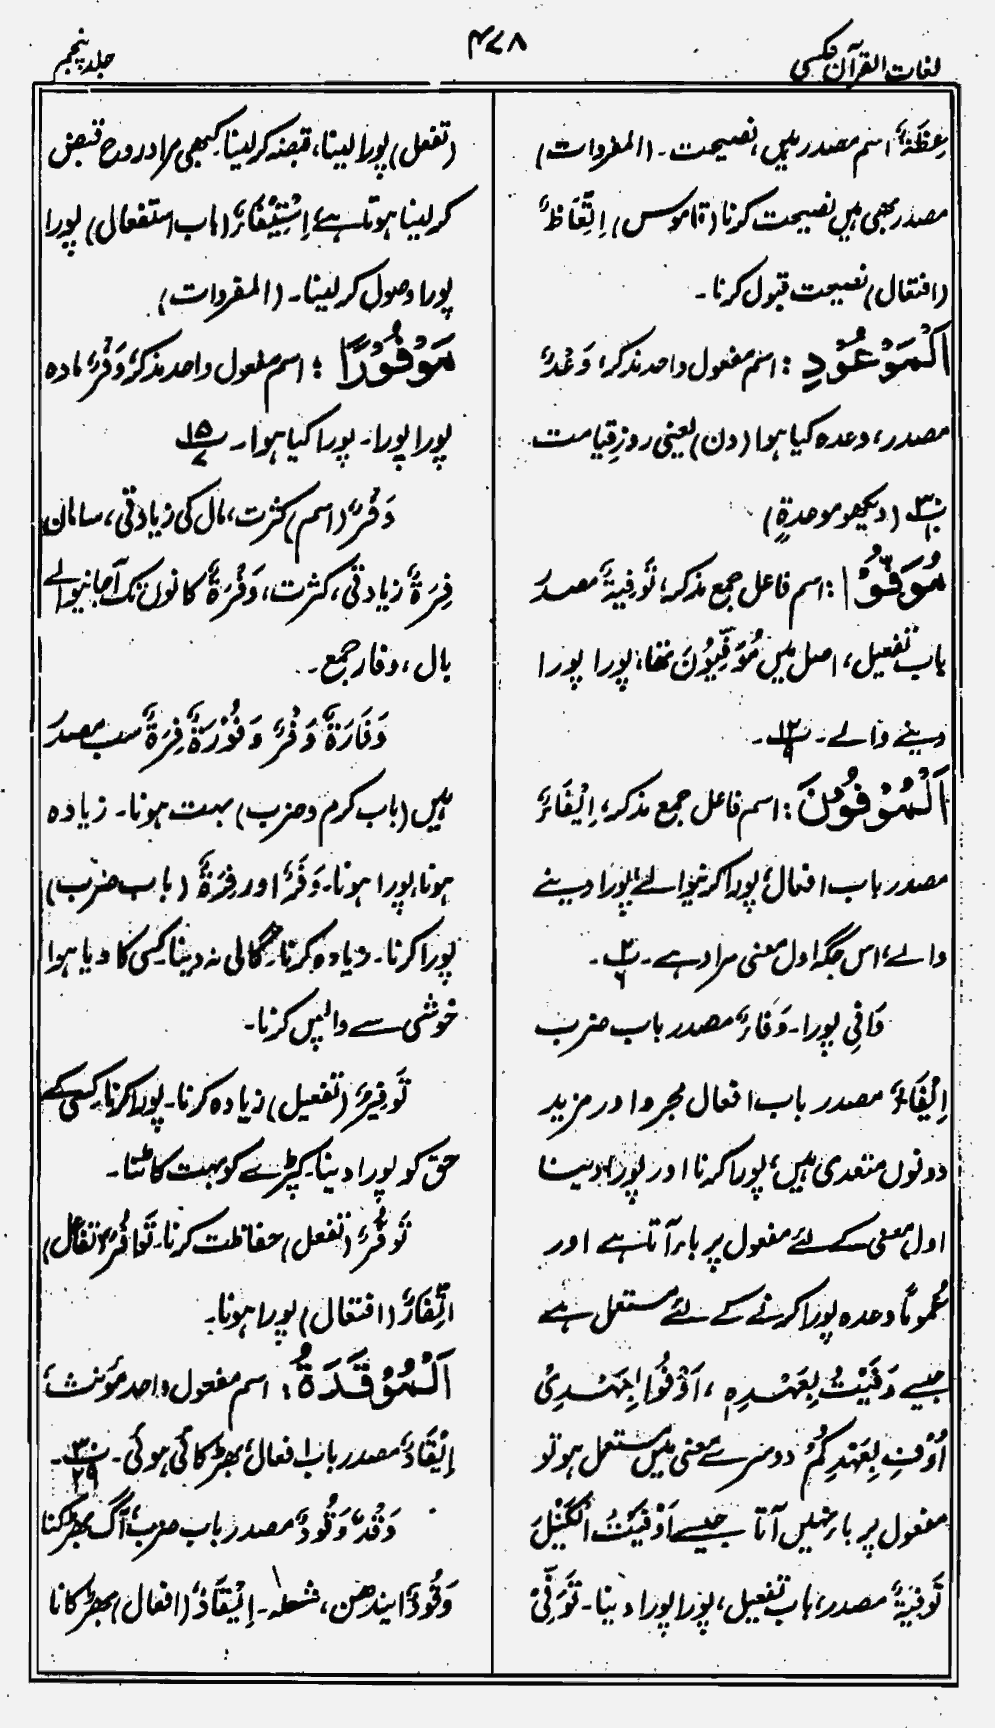 لغات القرآن عکسی
۴۷۸
جلد پنجم
عِظَةٌ اسم مصدر ہیں، نصیحت۔ (المفردات)
مصدر بھی ہیں نصیحت کرنا (قاموس) اِتِّعَاظٌ
(افتعال) نصیحت قبول کرنا۔
اَلْمَوْعُوْدِ: اسم مفعول واحد مذکر، وَعْدٌ
مصدر، وعدہ کیا ہوا (دن) یعنی روزِ قیامت
۳۰/۱۰ (دیکھو موحدةٍ)
مُوَفُّوْا: اسم فاعل جمع مذکر، تَوْفِيَةٌ مصدر
باب تفعیل، اصل میں مُوَفِّيُوْنَ تھا، پورا پورا
دینے والے۔ ۱۲/۹۔
اَلْمُوْفُوْنَ: اسم فاعل جمع مذکر، اِيْفَاءٌ
مصدر باب افعال، پورا کرنیوالے، پورا دینے
والے، اس جگہ اول معنی مراد ہے۔ ۲/۶۔
وَافِی پورا۔ وَفَاءٌ مصدر باب ضرب
اِيْفَاءٌ مصدر باب افعال مجرد اور مزید
دونوں متعدی ہیں، پورا کرنا اور پورا دینا
اول معنی کے لئے مفعول پر باء آتا ہے اور
عُمومًا وعدہ پورا کرنے کے لئے مستعمل ہے
جیسے وَفَيْتُ بِعَهْدِهٖ، اَوْفُوْا بِعَهْدِیْ
اُوْفِ بِعَهْدِكُمْ دوسرے معنی میں مستعمل ہو تو
مفعول پر باء نہیں آتا جیسے اَوْفَيْتُ الْكَيْلَ
تَوْفِيَةٌ مصدر، باب تفعیل، پورا پورا دینا۔ تَوَفِّیْ
(تفعل) پورا لینا، قبضہ کرلینا۔ کبھی مراد روح قبض
کرلینا ہوتا ہے، اِسْتِيْفَاءٌ (باب استفعال) پورا
پورا وصول کرلینا۔ (المفردات)
مَوْفُوْرًا: اسم مفعول واحد مذکر، وَفْرٌ مادہ
پورا پورا۔ پورا کیا ہوا۔ ۱۵/۷
وَفْرٌ (اسم) کثرت، مال کی زیادتی، سامان
فِرَةٌ زیادتی، کثرت، وَفْرَةٌ کانوں تک آجانیوالے
بال، وفار جمع۔
وَفَارَةٌ وَفْرٌ وَفُوْرَةٌ فِرَةٌ سب مصدر
ہیں (باب کرم و ضرب) بہت ہونا۔ زیادہ
ہونا، پورا ہونا۔ وَفْرٌ اور فِرَةٌ (باب ضرب)
پورا کرنا۔ زیادہ کرنا۔ گالی نہ دینا، کسی کا دیا ہوا
خوشی سے واپس کرنا۔
تَوْفِيْرٌ (تفعیل) زیادہ کرنا۔ پورا کرنا۔ کسی کے
حق کو پورا دینا۔ کپڑے کو بہت کاٹنا۔
تَوَفُّرٌ (تفعل) حفاظت کرنا۔ تَوَافُرٌ (تفاعل)
اتِّفَارٌ (افتعال) پورا ہونا۔
اَلْمُوْقَدَةُ: اسم مفعول واحد مؤنث،
اِيْقَادٌ مصدر باب افعال، بھڑکائی ہوئی۔ ۳۰/۲۹۔
وَقْدٌ وَقُوْدٌ مصدر باب ضرب، آگ بھڑکنا
وَقُوْدٌ ایندھن، شعلہ۔ اِيْقَادٌ (افعال) بھڑکانا